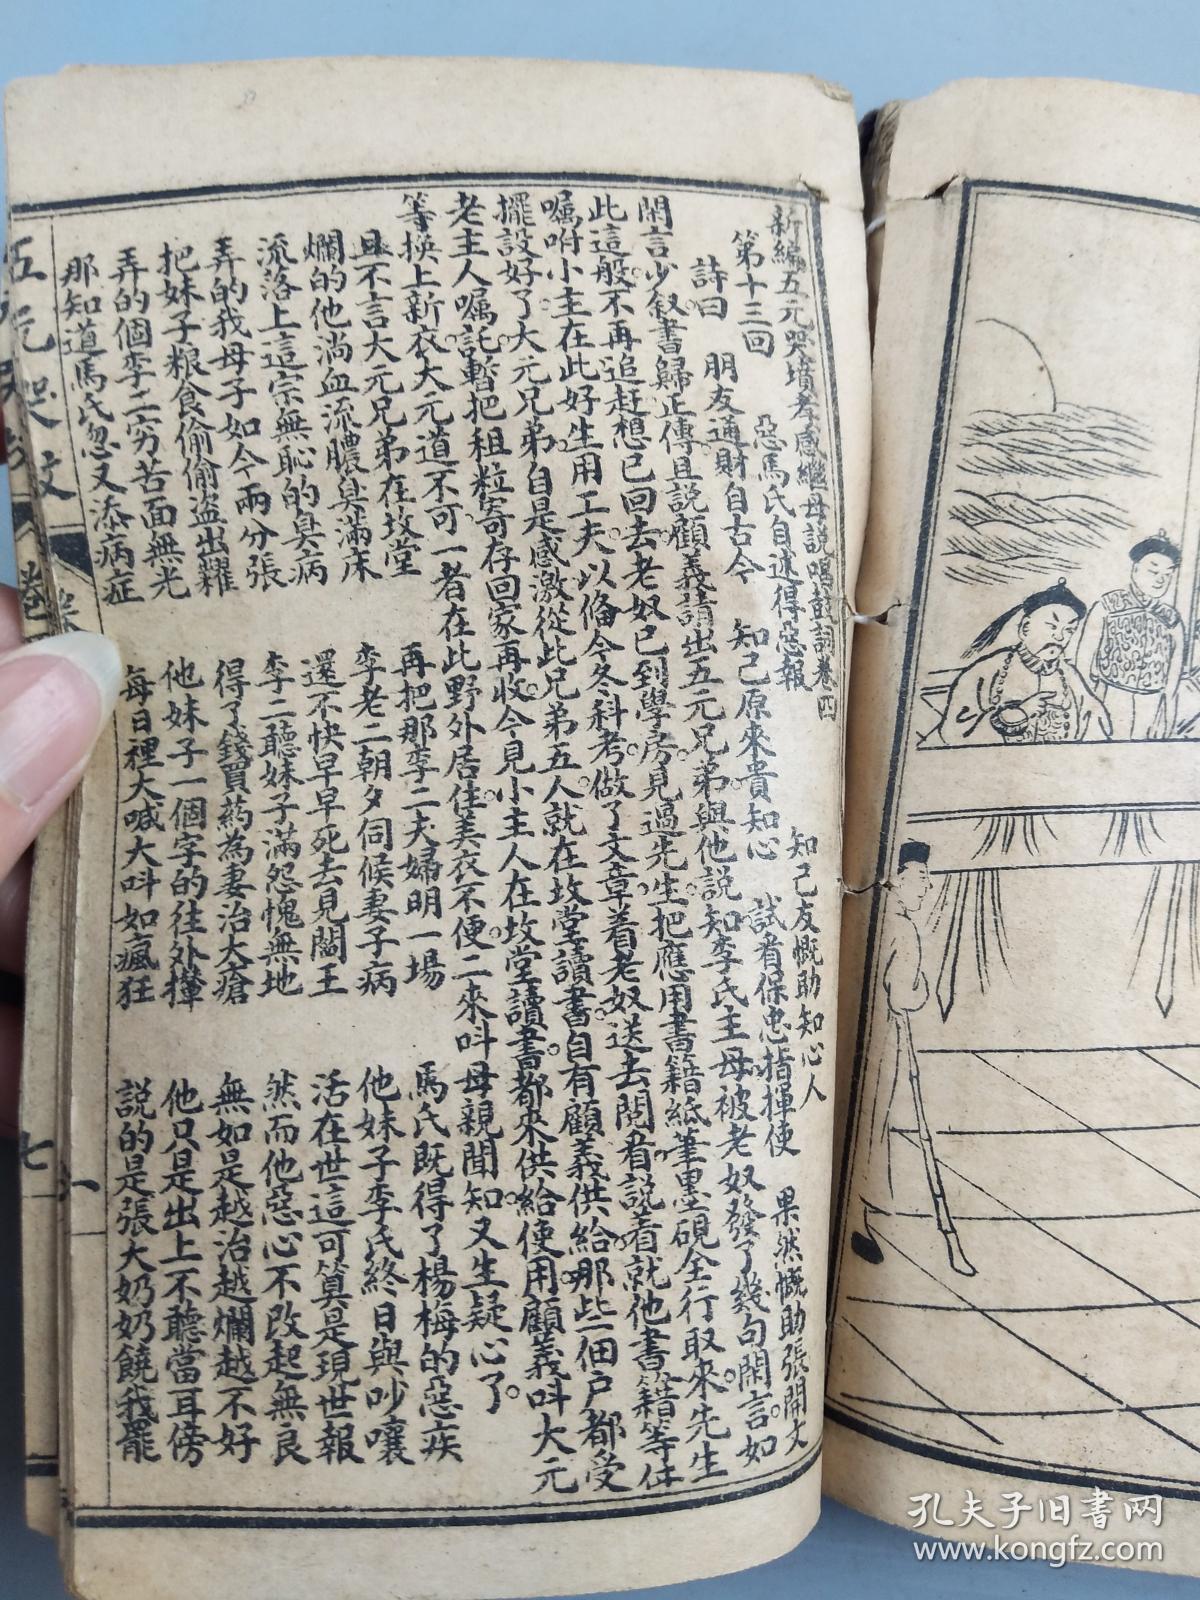 新編五元哭墳孝感繼母説唱鼓詞卷四
第十三回 惡馬氏自述得惡報 知己友慨助知心人
詩曰 朋友通財自古今 知己原來貴知心 試看保忠指揮使 果然慨助張開文
閑言少叙書歸正傳且説顧義請出五元兄弟與他説知李氏主母被老奴發了幾句閑言如
此這般不再追赶想已回去老奴已到學房見過先生把應用書籍紙筆墨硯全行取來先生
囑咐小主在此好生用工夫以俻今冬科考做了文章着老奴送去閲看説着就他書籍等件
擺設好了大元兄弟自是感激從此兄弟五人就在坟堂讀書自有顧義供給那些佃户都受
老主人囑託暫把租粒寄存回家再收今見小主人在坟堂讀書都來供給使用顧義呌大元
等换上新衣大元道不可一者在此野外居住美衣不便二來呌母親聞知又生疑心了
且不言大元兄弟在坟堂 再把那李二夫婦明一場 馬氏既得了楊梅的惡疾
爛的他淌血流膿臭滿床 李老二朝夕伺候妻子病 他妹子李氏終日與吵嚷
流落上這宗無恥的臭病 還不快早早死去見閻王 活在世這可算是現世報
弄的我母子如今兩分張 李二聽妹子滿怨愧無地 然而他惡心不改起無良
把妹子粮食偷偷盗出糶 得了錢買葯為妻治大瘡 無如是越治越爛越不好
弄的個李二窮苦面無光 他妹子一個字的往外攆 他只是出上不聽當耳傍
那知道馬氏忽又添病症 每日裡大喊大呌如瘋狂 説的是張大奶奶饒我罷
五元哭坟
卷四
七
孔夫子旧书网
www.kongfz.com